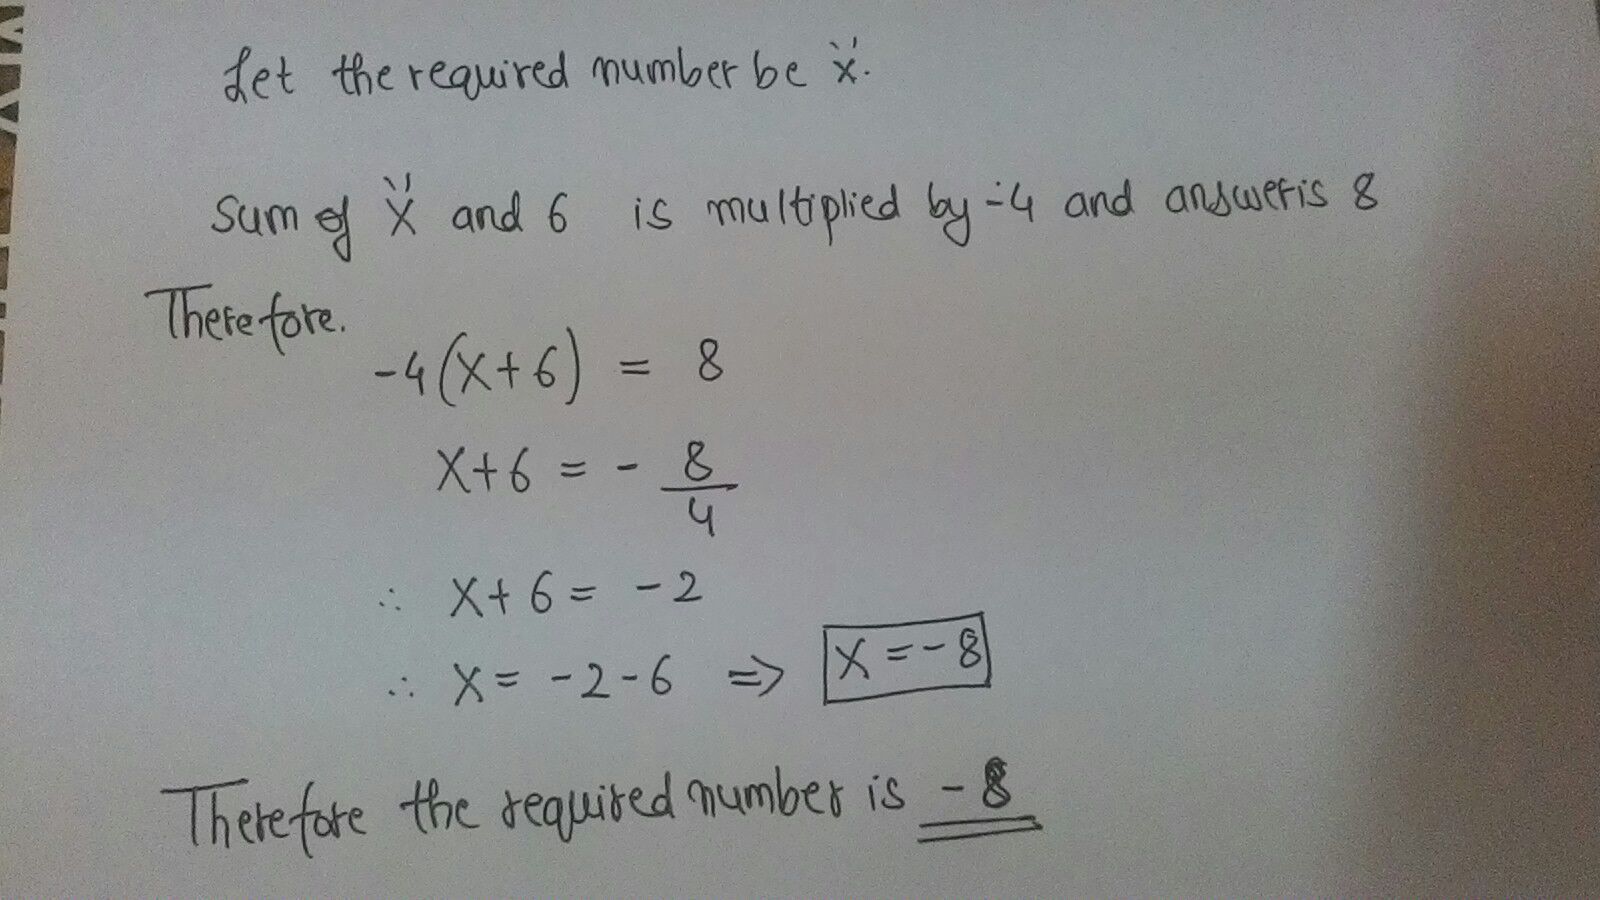 Let the required number be "x".
Sum of "x" and 6 is multiplied by -4 and answer is 8
Therefore.
-4(x+6) = 8
x+6 = - 8/4
∴ x+6 = -2
∴ x = -2-6 => x = -8
Therefore the required number is -8